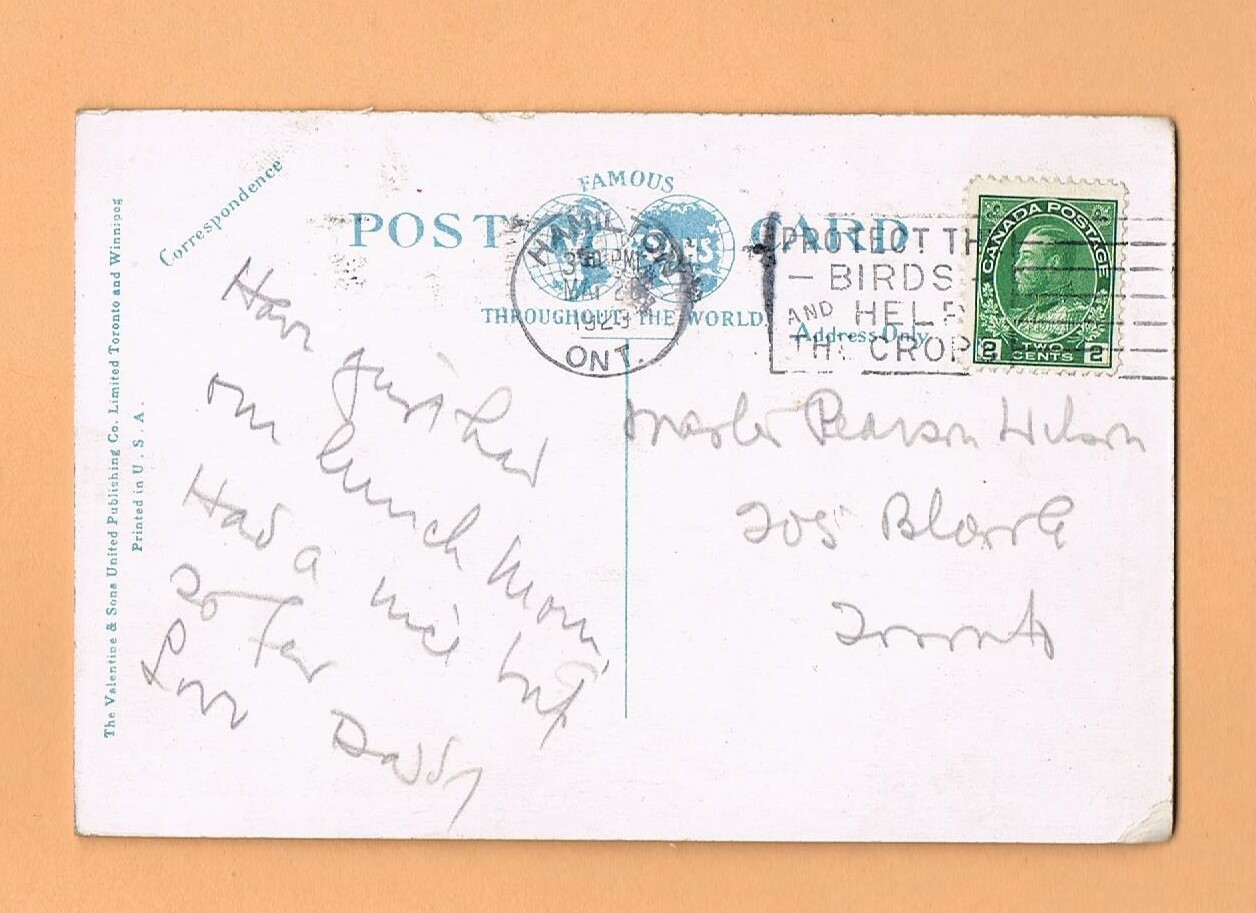 The Valentine & Sons United Publishing Co. Limited Toronto and Winnipeg
Printed in U. S. A.
Correspondence
FAMOUS
POST CARD
THROUGHOUT THE WORLD
Address Only
HAMILTON
3 PM
1923
ONT.
PROTECT TH
— BIRDS
AND HELP
THE CROP
CANADA POSTAGE
2 TWO CENTS 2
Have just had
our lunch
Had a nice
so far
Love Daddy
Master Pearson Wilson
205
Toronto